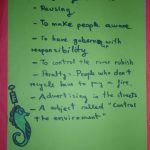 - Reusing
- To make people aware
- To have gabarra with
responsibility
- To control the river rubish
- Penalty - People who don't
recycle have to pay a fine.
- Advertising in the streets
- A object called "Control
the enviroment"